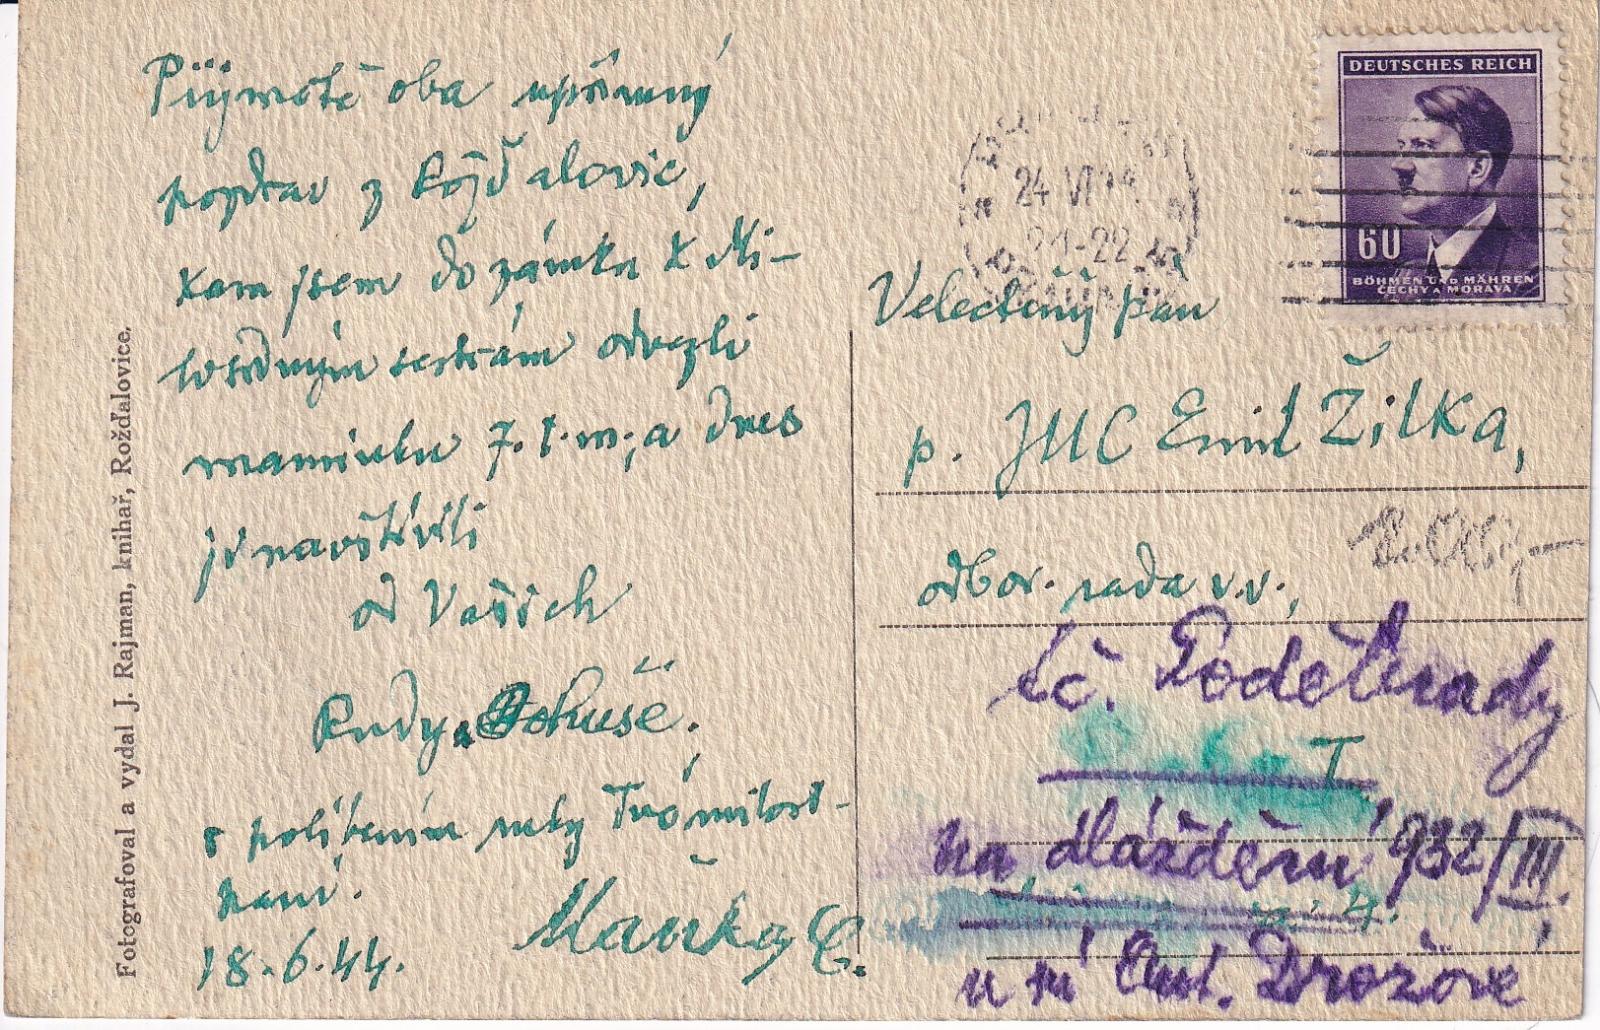 Přijměte oba upřímný
pozdrav z Rožďalovic,
kam jsem do zámku k Mi-
losrdným sestrám odvezli
maminku 7. t. m., a dnes
ji navštívili
od Vašich
Rudy a Bohuše.
s políbením ruky Tvé milost-
paní.
18.6.44.
Fotografoval a vydal J. Rajman, knihař, Rožďalovice.
DEUTSCHES REICH
60
BÖHMEN UND MÄHREN
ČECHY A MORAVA
24 VI
21-22
Velectěný pan
p. JUC Emil Žilka,
odbor. rada v.v.,
Lč. Poděbrady
I
na dláždění 932/III.
č. 4.
u pí Ant. Drožové